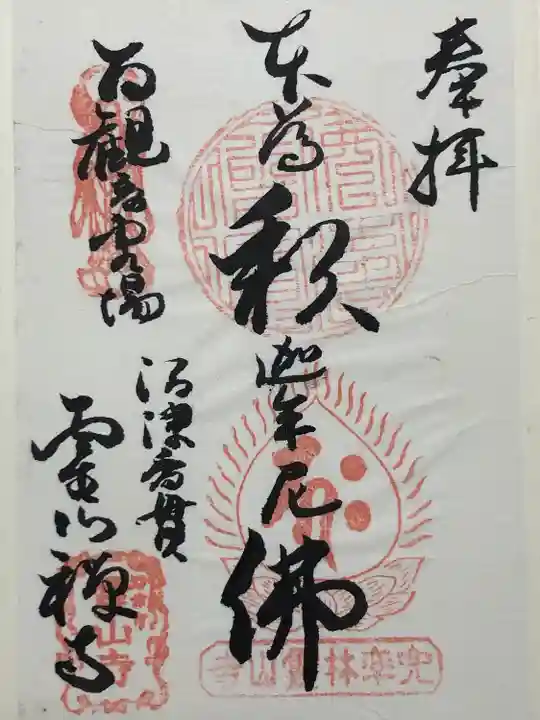 奉拝
本尊 釈迦牟尼佛
百観音霊場
沼津香貫
霊山禅寺
兜率林霊山寺